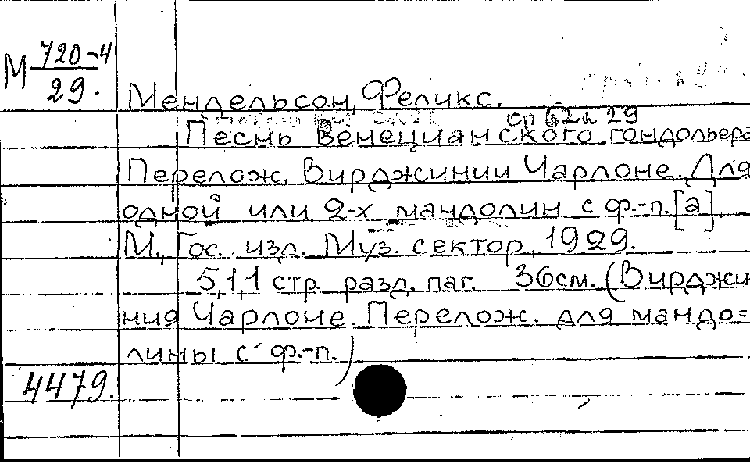 М 720-4
29.
Мендельсон, Феликс.
ор 62 н 29
Песнь Венецианского гондольера
Перелож. Вирджинии Чарлоне. Для
одной или 2-х мандолин с ф.-п. [а]
М., Гос. изд. Муз. сектор, 1929.
5,1,1 стр. разд. паг. 36см. (Вирджи
ния Чарлоне. Перелож. для мандо=
лины с ф.-п.)
4479.